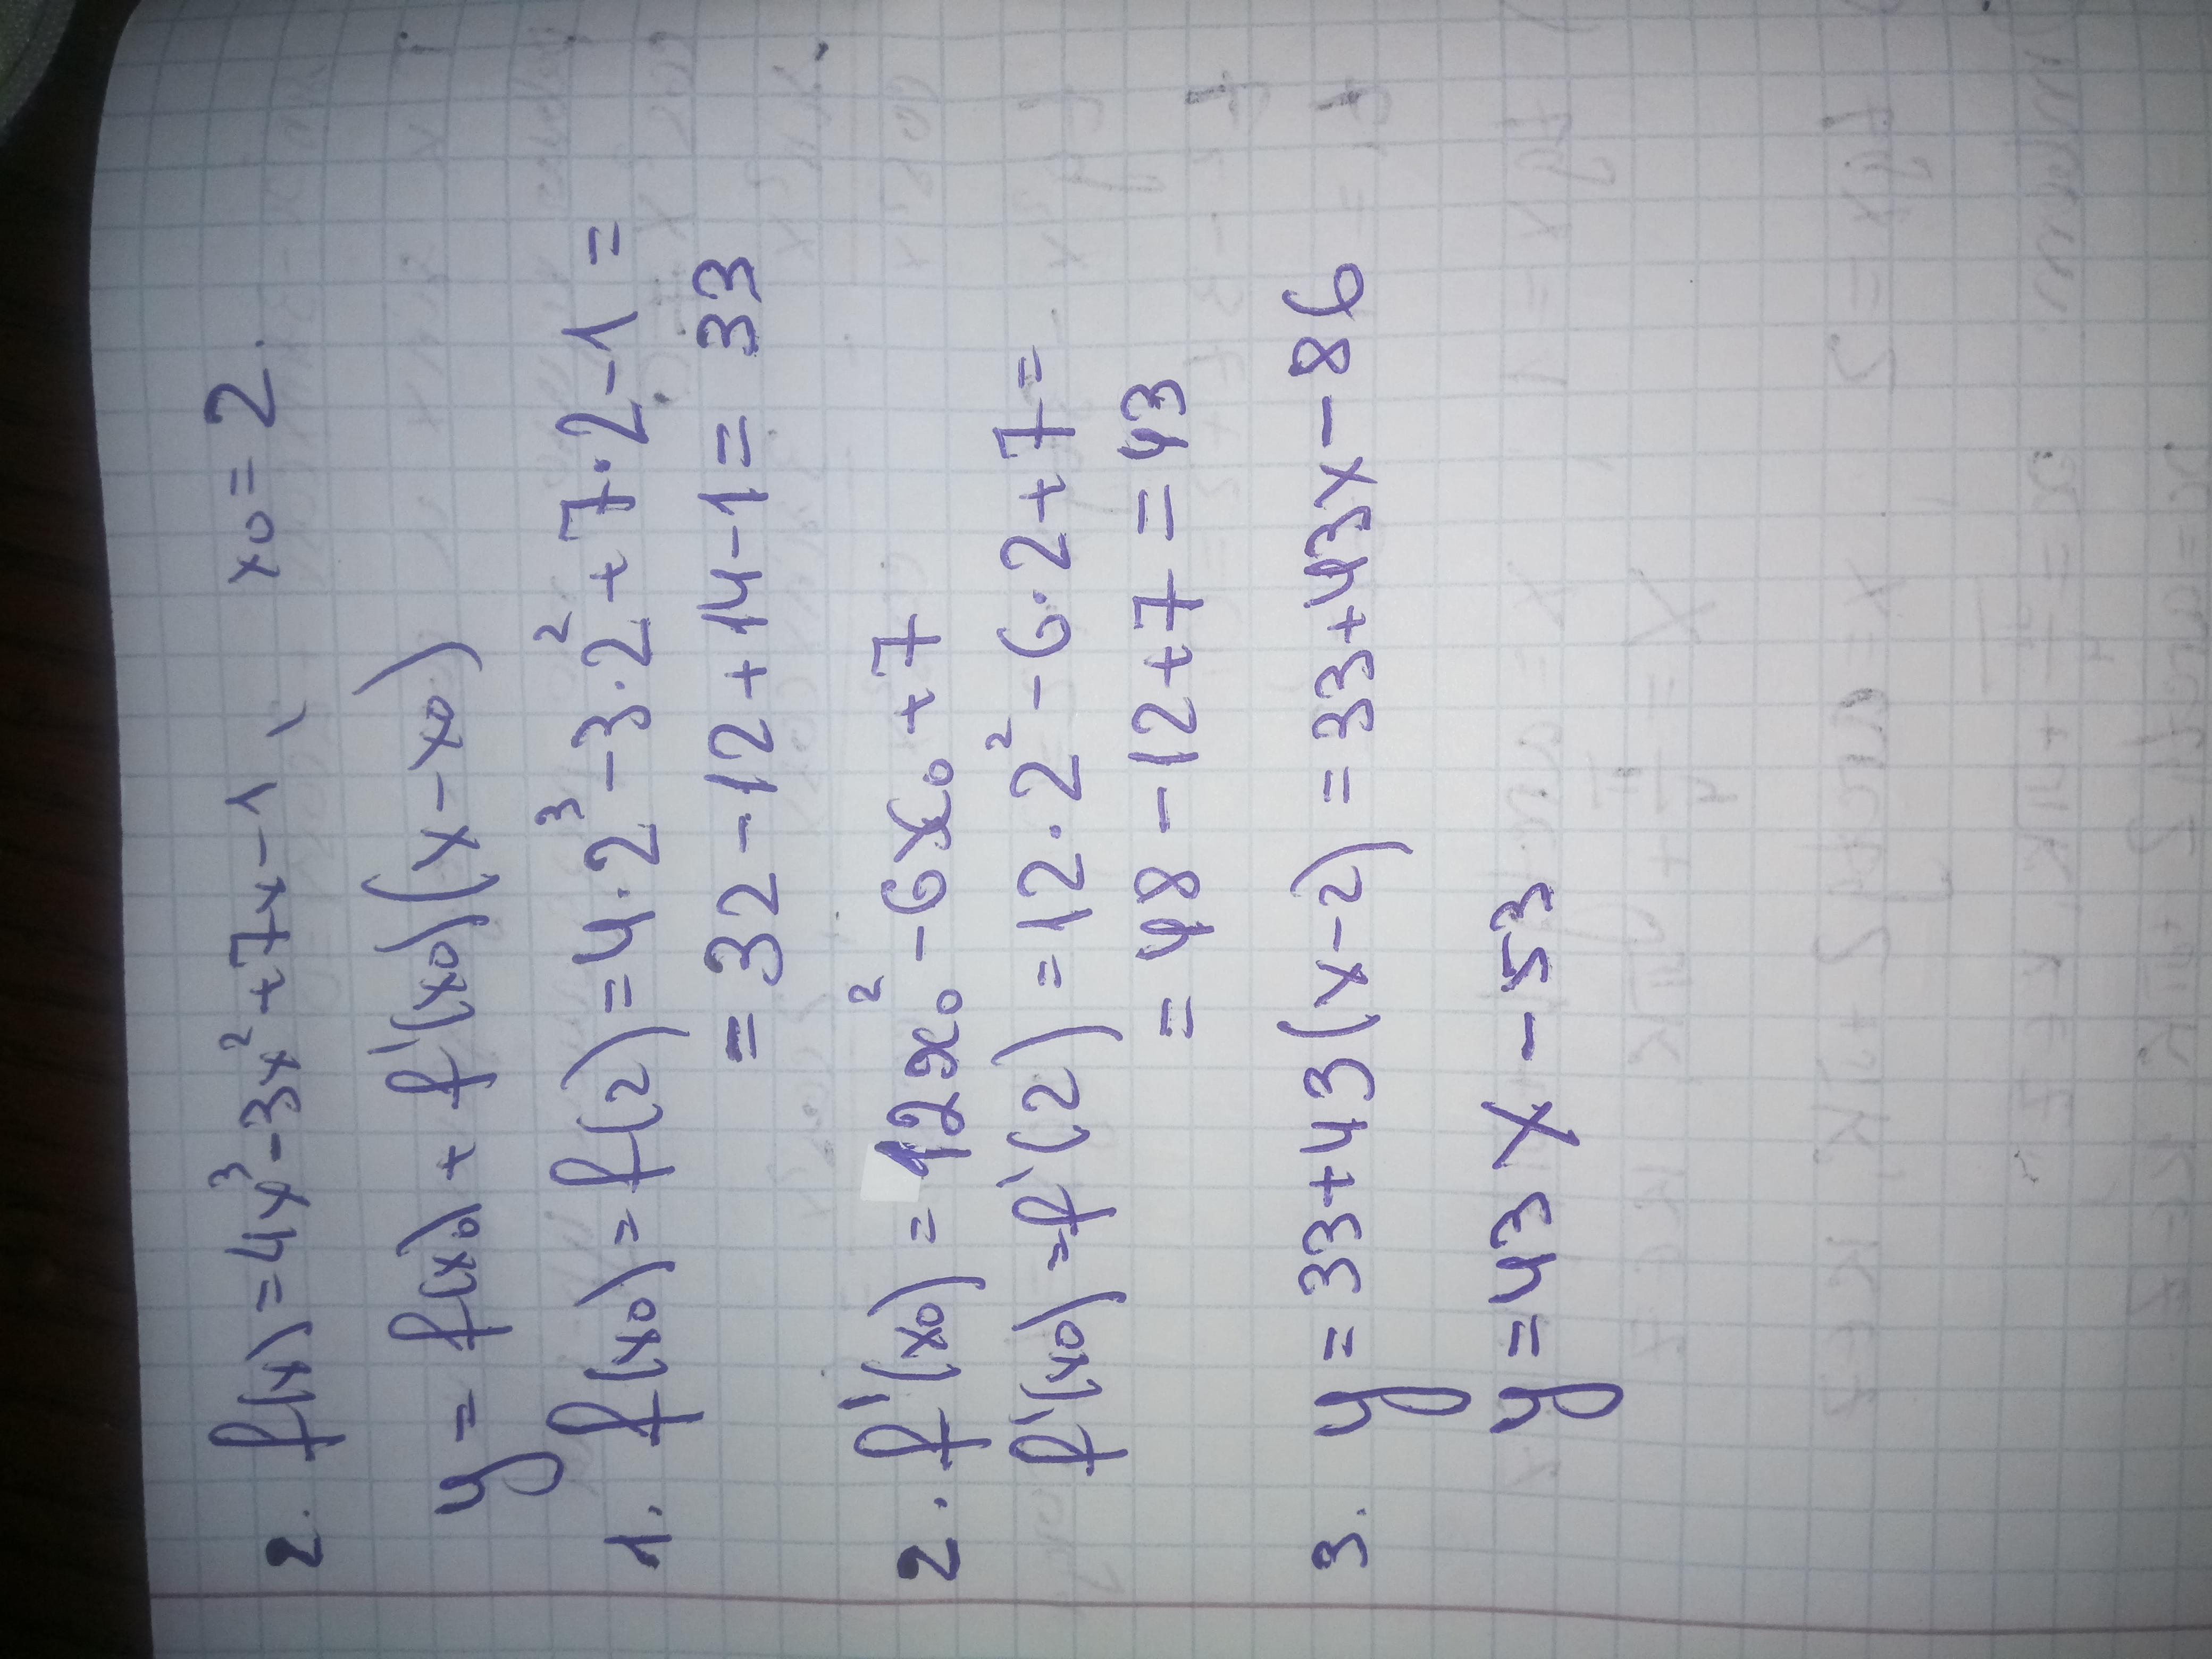 2. f(x) = 4x³ - 3x² + 7x - 1, x₀ = 2.
y = f(x₀) + f'(x₀)(x - x₀)
1. f(x₀) = f(2) = 4·2³ - 3·2² + 7·2 - 1 =
= 32 - 12 + 14 - 1 = 33
2. f'(x₀) = 12x₀² - 6x₀ + 7
f'(x₀) = f'(2) = 12·2² - 6·2 + 7 =
= 48 - 12 + 7 = 43
3. y = 33 + 43(x - 2) = 33 + 43x - 86
y = 43x - 53